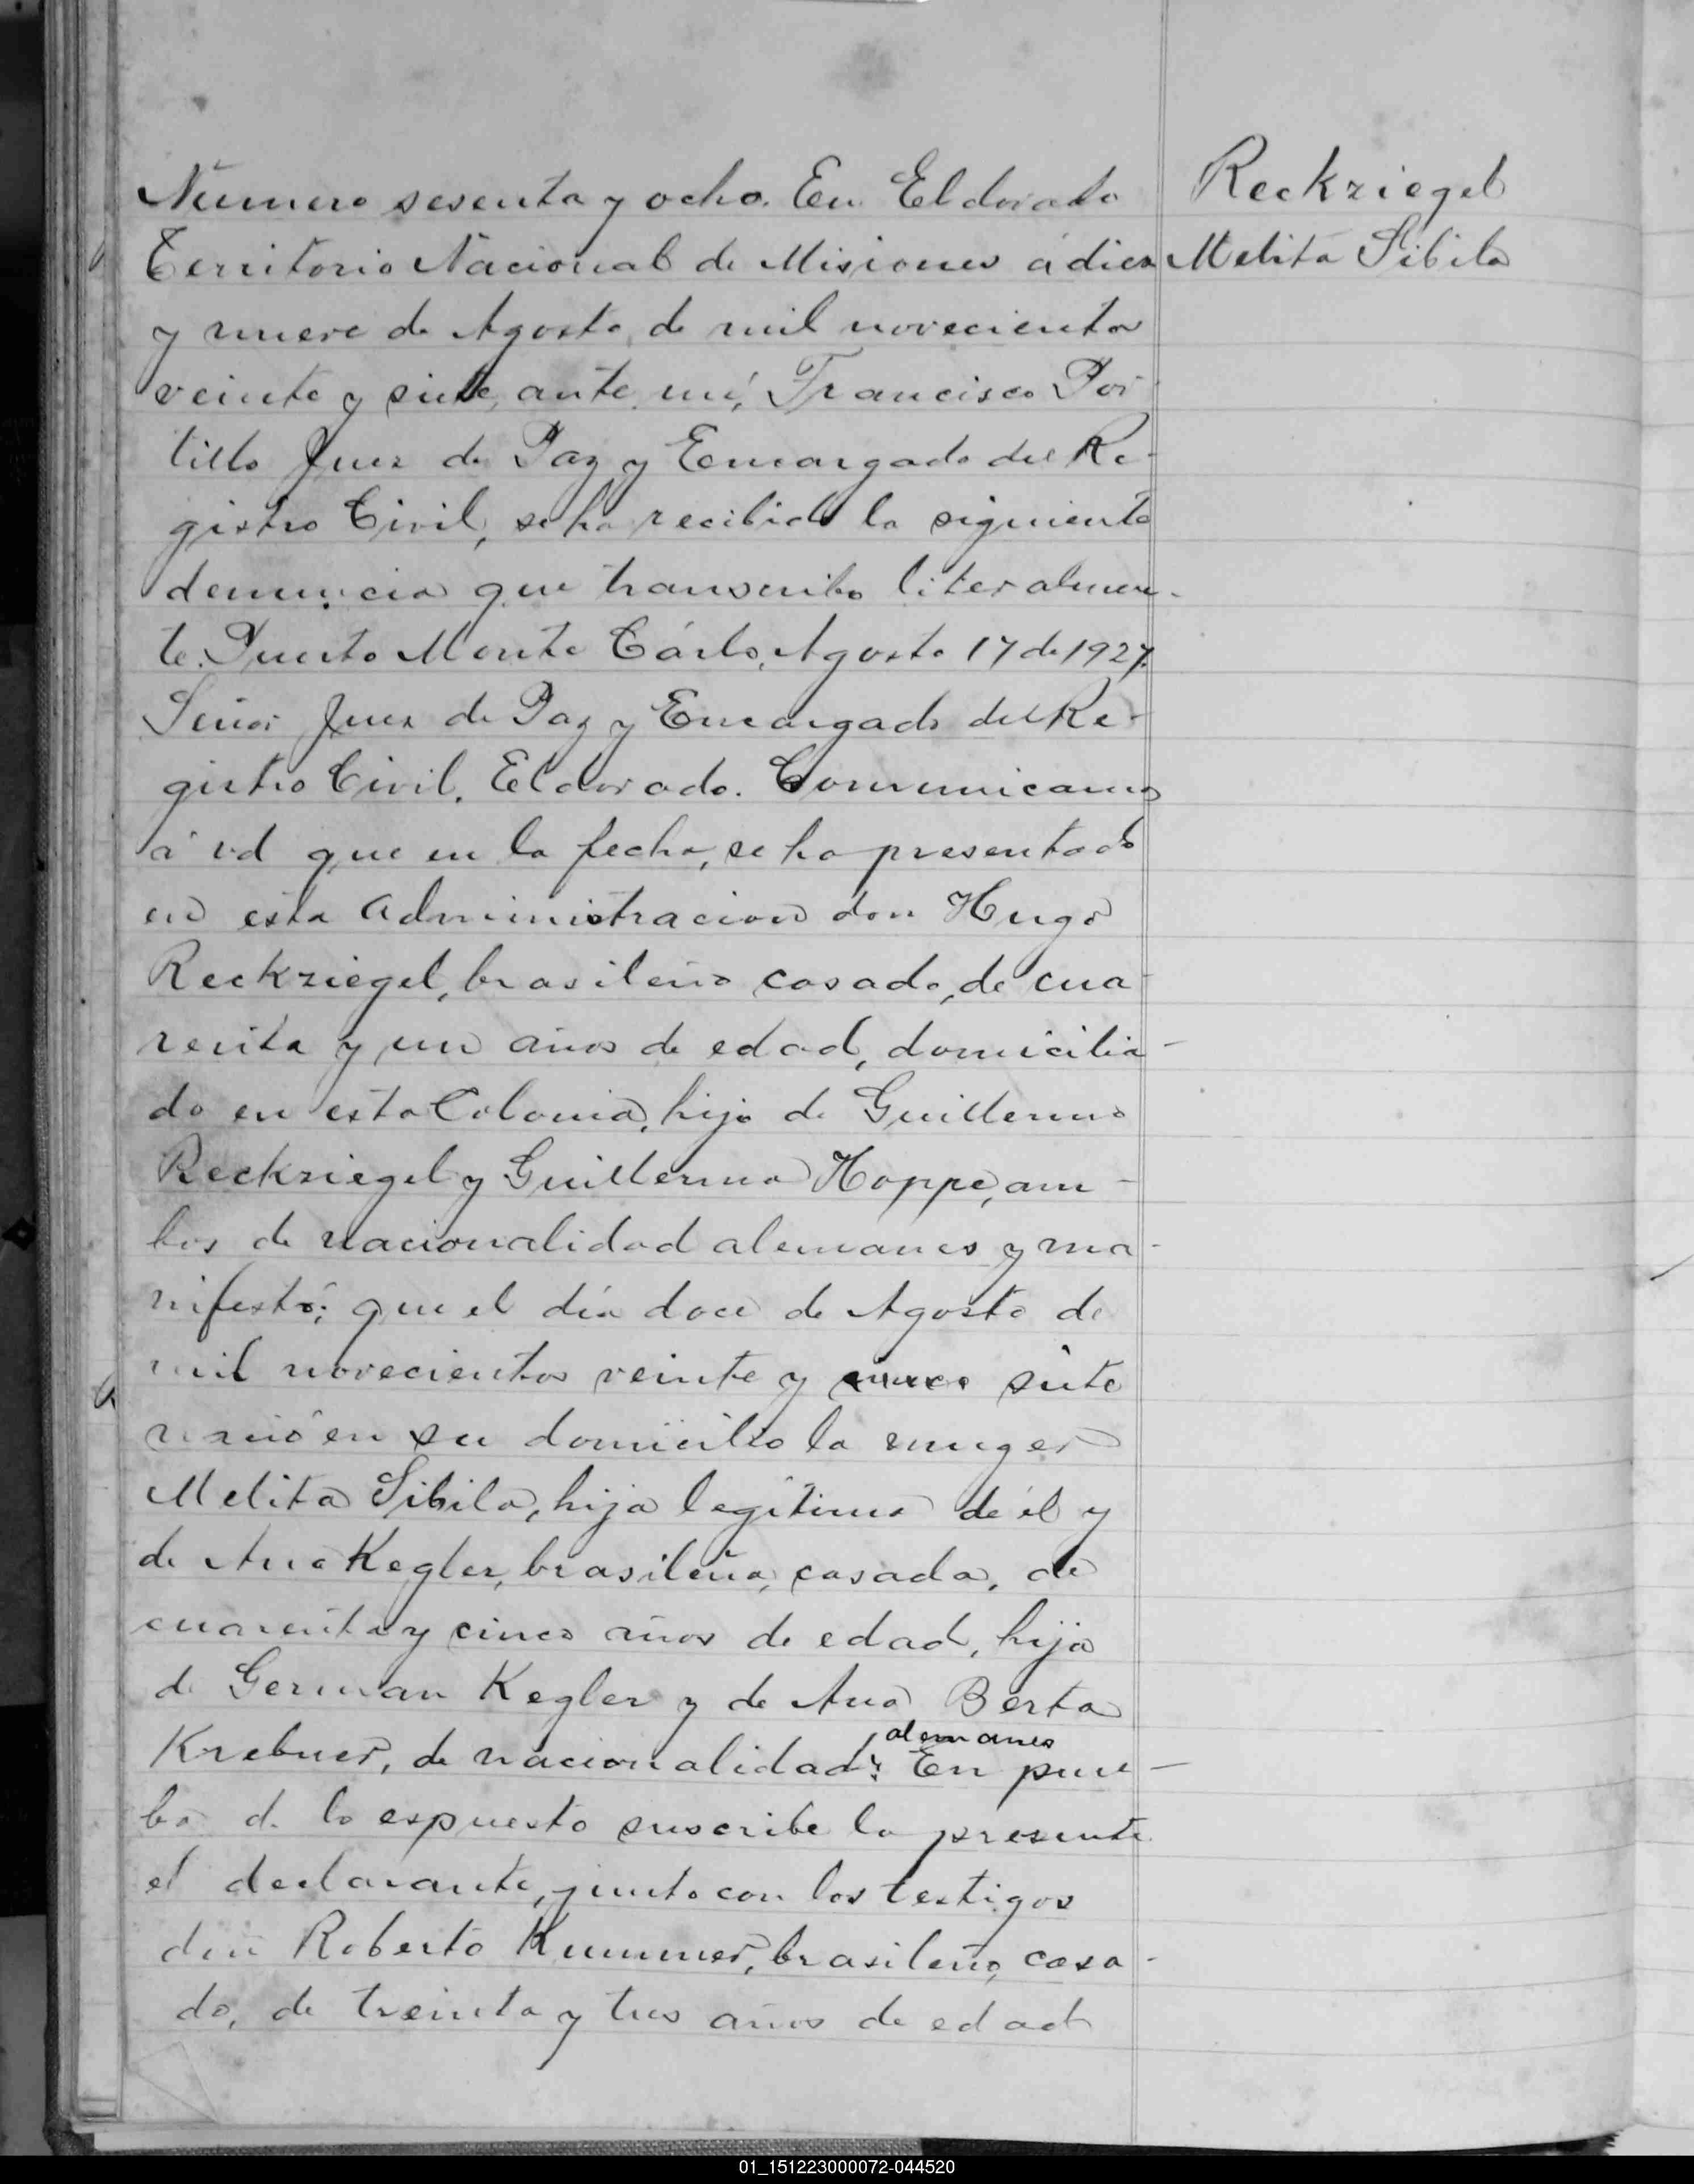 Reckziegel
Melita Sibila
Número sesenta y ocho. En Eldorado
Territorio Nacional de Misiones á diez
y nueve de Agosto de mil novecientos
veinte y siete, ante mí, Francisco Por-
tillo Juez de Paz y Encargado del Re-
gistro Civil, se ha recibido la siguiente
denuncia que transcribo literalmen-
te. Puerto Monte Cárlo, Agosto 17 de 1927.
Señor Juez de Paz y Encargado del Re-
gistro Civil. Eldorado. Comunicamos
á vd que en la fecha, se ha presentado
en esta Administracion don Hugo
Reckziegel, brasileño casado, de cua-
renta y un años de edad, domicilia-
do en esta Colonia, hijo de Guillermo
Reckziegel y Guillerma Hoppe, am-
bos de nacionalidad alemanes y ma-
nifestó; que el día doce de Agosto de
mil novecientos veinte y siete
nació en su domicilio la muger
Melita Sibila, hija legítima de él y
de Ana Kegler, brasileña, casada, de
cuarenta y cinco años de edad, hija
de German Kegler y de Ana Berta
alemanes
Krebuer, de nacionalidad. En prue-
ba de lo espuesto suscribe la presente
el declarante, junto con los testigos
don Roberto Kummer, brasileño, casa-
do, de treinta y tres años de edad
01_151223000072-044520